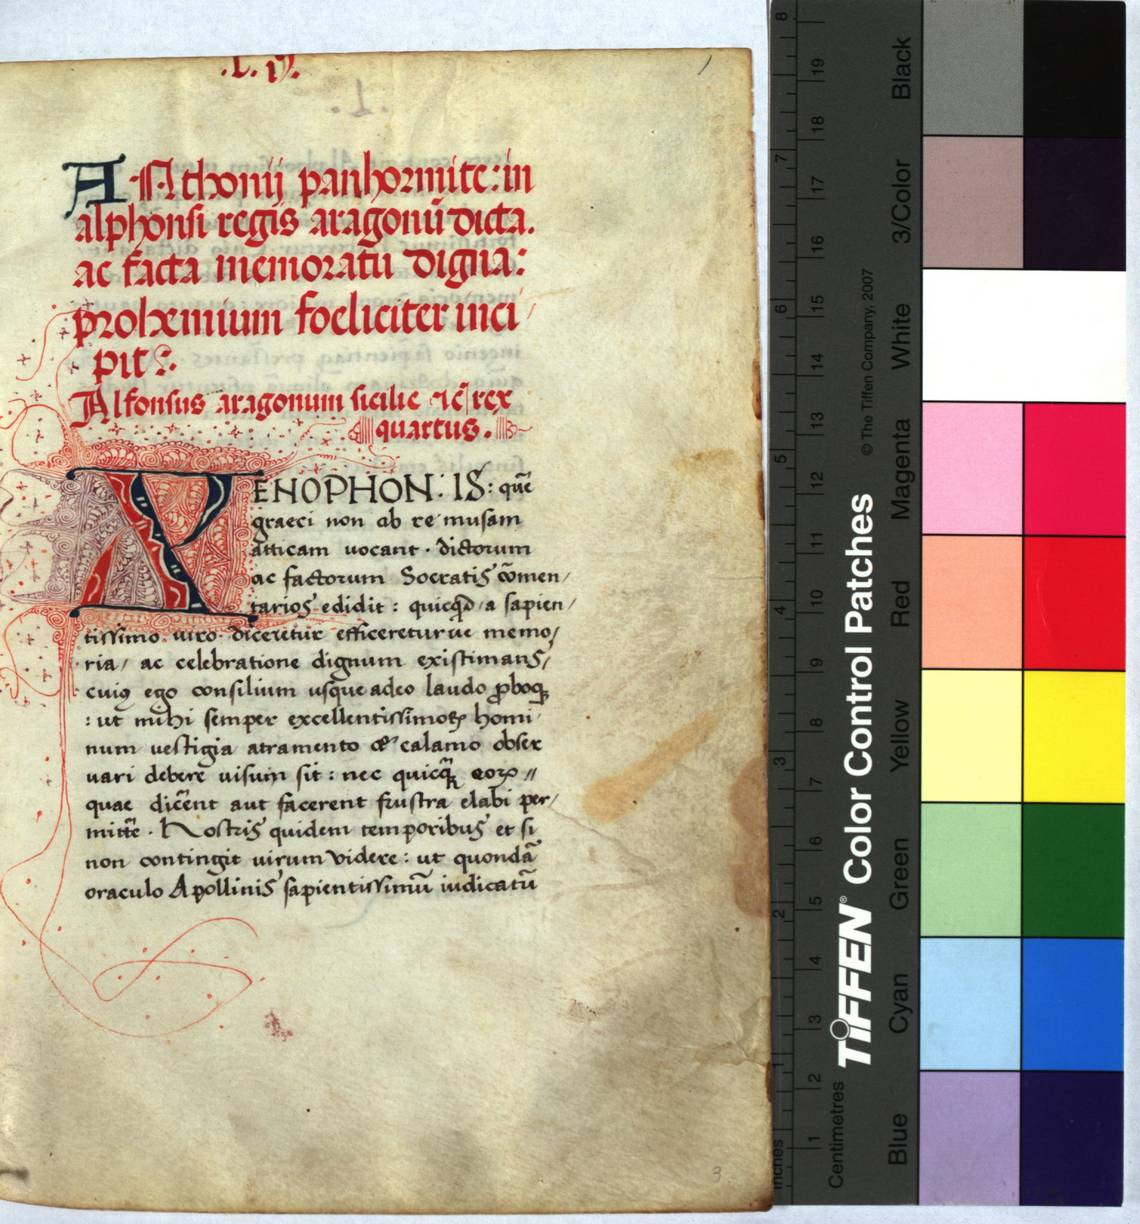 .L. IJ.
1
.I.
A. Nthonij panhormite: in
alphonsi regis aragonū dicta.
ac facta memoratu digna:
prohemium foeliciter inci
pit:
Alfonsus aragonum sicilie rex
quartus.
XENOPHON. IS: quē
graeci non ab re musam
atticam uocant. dictorum
ac factorum Socratis cōmen/
tarios edidit: quicqd a sapien/
tissimo uiro diceretur efficereturue memo/
ria/ ac celebratione dignum existimans/
cuiꝰ ego consilium usque adeo laudo ꝓboqꝫ
: ut mihi semper excellentissimoꝝ homi
num uestigia atramento & calamo obser
uari debere uisum sit: nec quicꝙ̃ eoꝝ //
quae dicẽt aut facerent frustra elabi per/
mitte. Nostris quidem temporibus et si
non contingit uirum videre: ut quondā
oraculo Apollinis sapientissimū iudicatū
3
8 7 6 5 4 3 2 1 Inches
19 18 17 16 15 14 13 12 11 10 9 8 7 6 5 4 3 2 1 Centimetres
© The Tiffen Company, 2007
TIFFEN® Color Control Patches
Blue Cyan Green Yellow Red Magenta White 3/Color Black